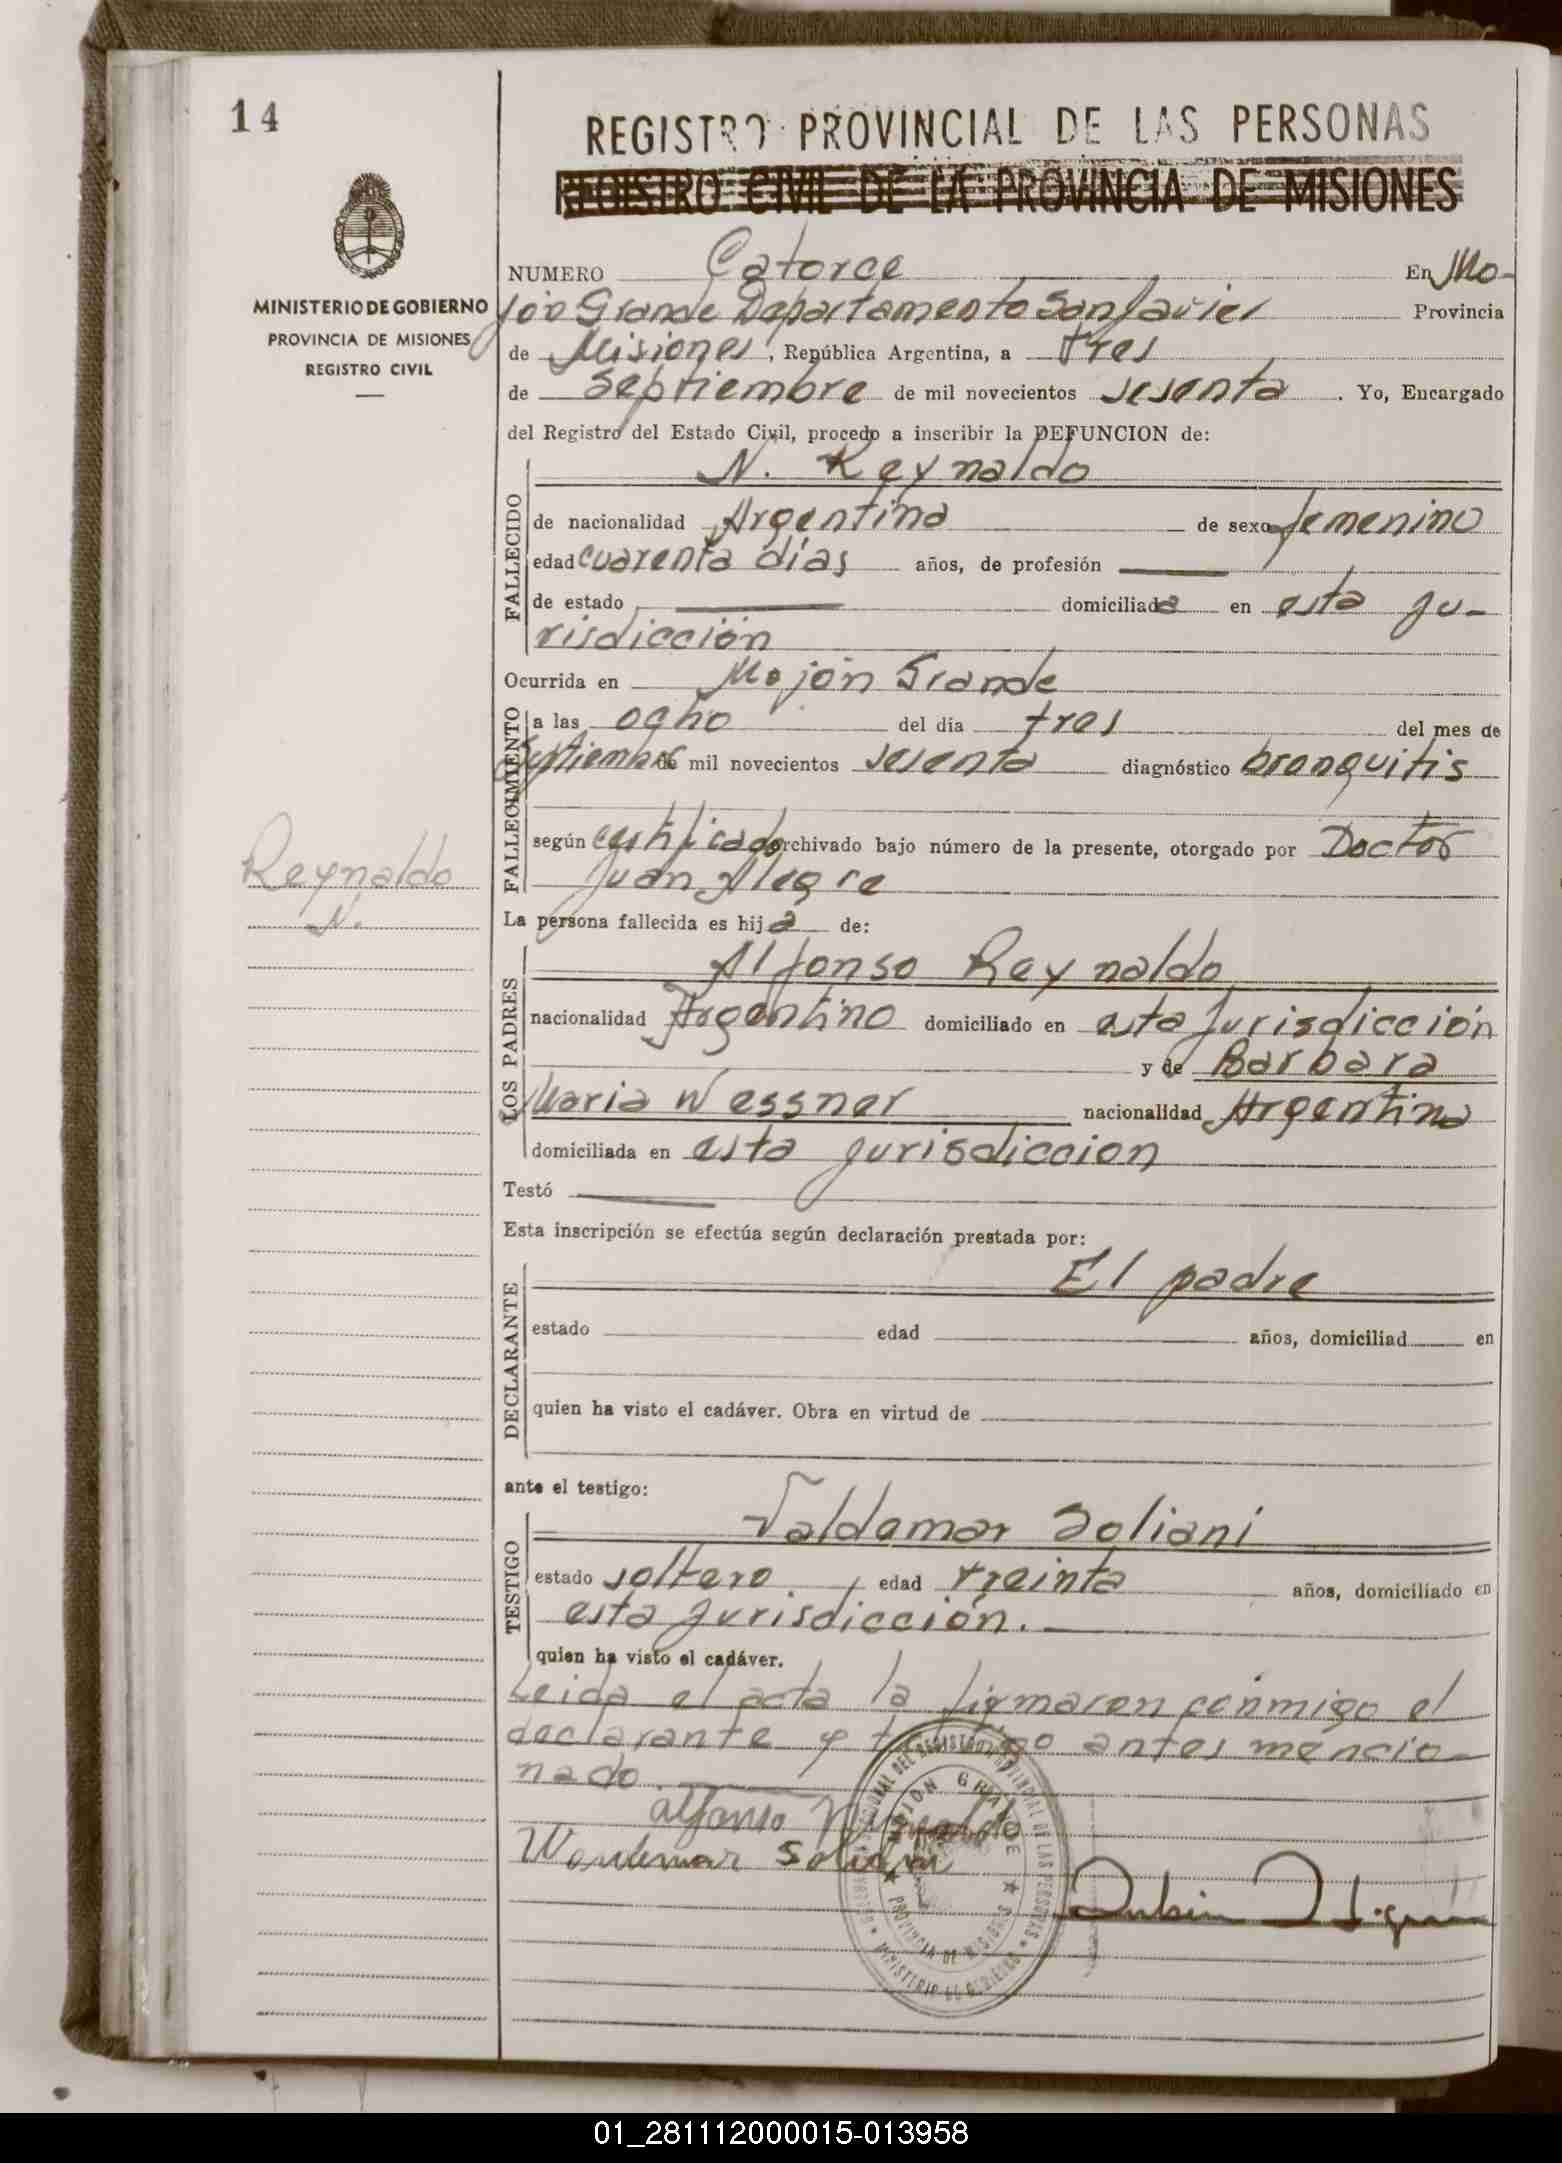 14
REGISTRO PROVINCIAL DE LAS PERSONAS
REGISTRO CIVIL DE LA PROVINCIA DE MISIONES
MINISTERIO DE GOBIERNO
PROVINCIA DE MISIONES
REGISTRO CIVIL
NUMERO Catorce En Mo-
jón Grande Departamento San Javier Provincia
de Misiones, República Argentina, a tres
de septiembre de mil novecientos sesenta. Yo, Encargado
del Registro del Estado Civil, procedo a inscribir la DEFUNCION de:
FALLECIDO
N. Reynaldo
de nacionalidad Argentina de sexo femenino
edad cuarenta días años, de profesión
de estado domiciliada en esta ju-
risdicción
Ocurrida en Mojón Grande
FALLECIMIENTO
a las ocho del día tres del mes de
Septiembre de mil novecientos sesenta diagnóstico bronquitis
según certificado archivado bajo número de la presente, otorgado por Doctor
Juan Alegre
Reynaldo
N.
La persona fallecida es hija de:
LOS PADRES
Alfonso Reynaldo
nacionalidad Argentino domiciliado en esta Jurisdicción
y de Barbara
Maria Wessner nacionalidad Argentina
domiciliada en esta jurisdiccion
Testó
Esta inscripción se efectúa según declaración prestada por:
DECLARANTE
El padre
estado edad años, domiciliad en
quien ha visto el cadáver. Obra en virtud de
ante el testigo:
TESTIGO
Valdemar Soliani
estado soltero. edad treinta años, domiciliado en
esta jurisdicción.
quien ha visto el cadáver.
Leida el acta la firmaron conmigo el
declarante y testigo antes mencio-
nado.
Alfonso Reynaldo
Wandemar Soliani
MOJON GRANDE
PROVINCIA DE MISIONES
MINISTERIO DE GOBIERNO
01_281112000015-013958